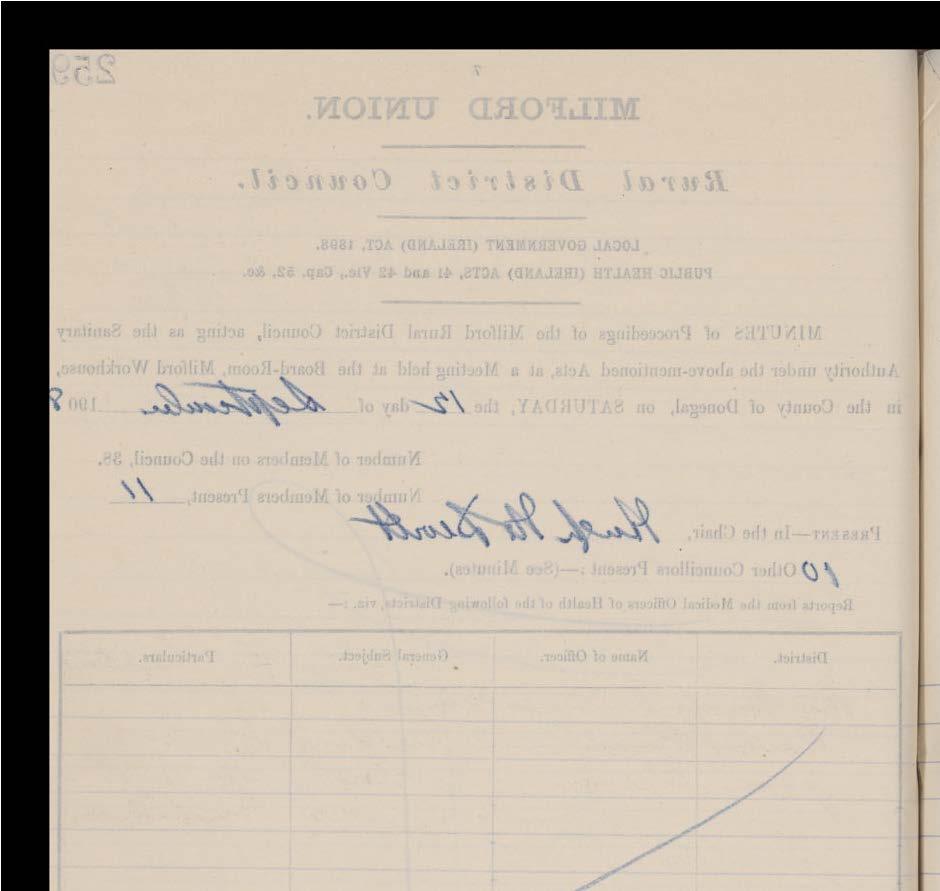 259
7
MILFORD UNION.
Rural District Council.
LOCAL GOVERNMENT (IRELAND) ACT, 1898.
PUBLIC HEALTH (IRELAND) ACTS, 41 and 42 Vic., Cap. 52, &c.
MINUTES of Proceedings of the Milford Rural District Council, acting as the Sanitary
Authority under the above-mentioned Acts, at a Meeting held at the Board-Room, Milford Workhouse,
in the County of Donegal, on SATURDAY, the 12 day of September 1908
Number of Members on the Council, 38.
Number of Members Present, 11
PRESENT—In the Chair, Hugh McDevitt
10 Other Councillors Present :—(See Minutes).
Reports from the Medical Officers of Health of the following Districts, viz. :—
District. Name of Officer. General Subject. Particulars.